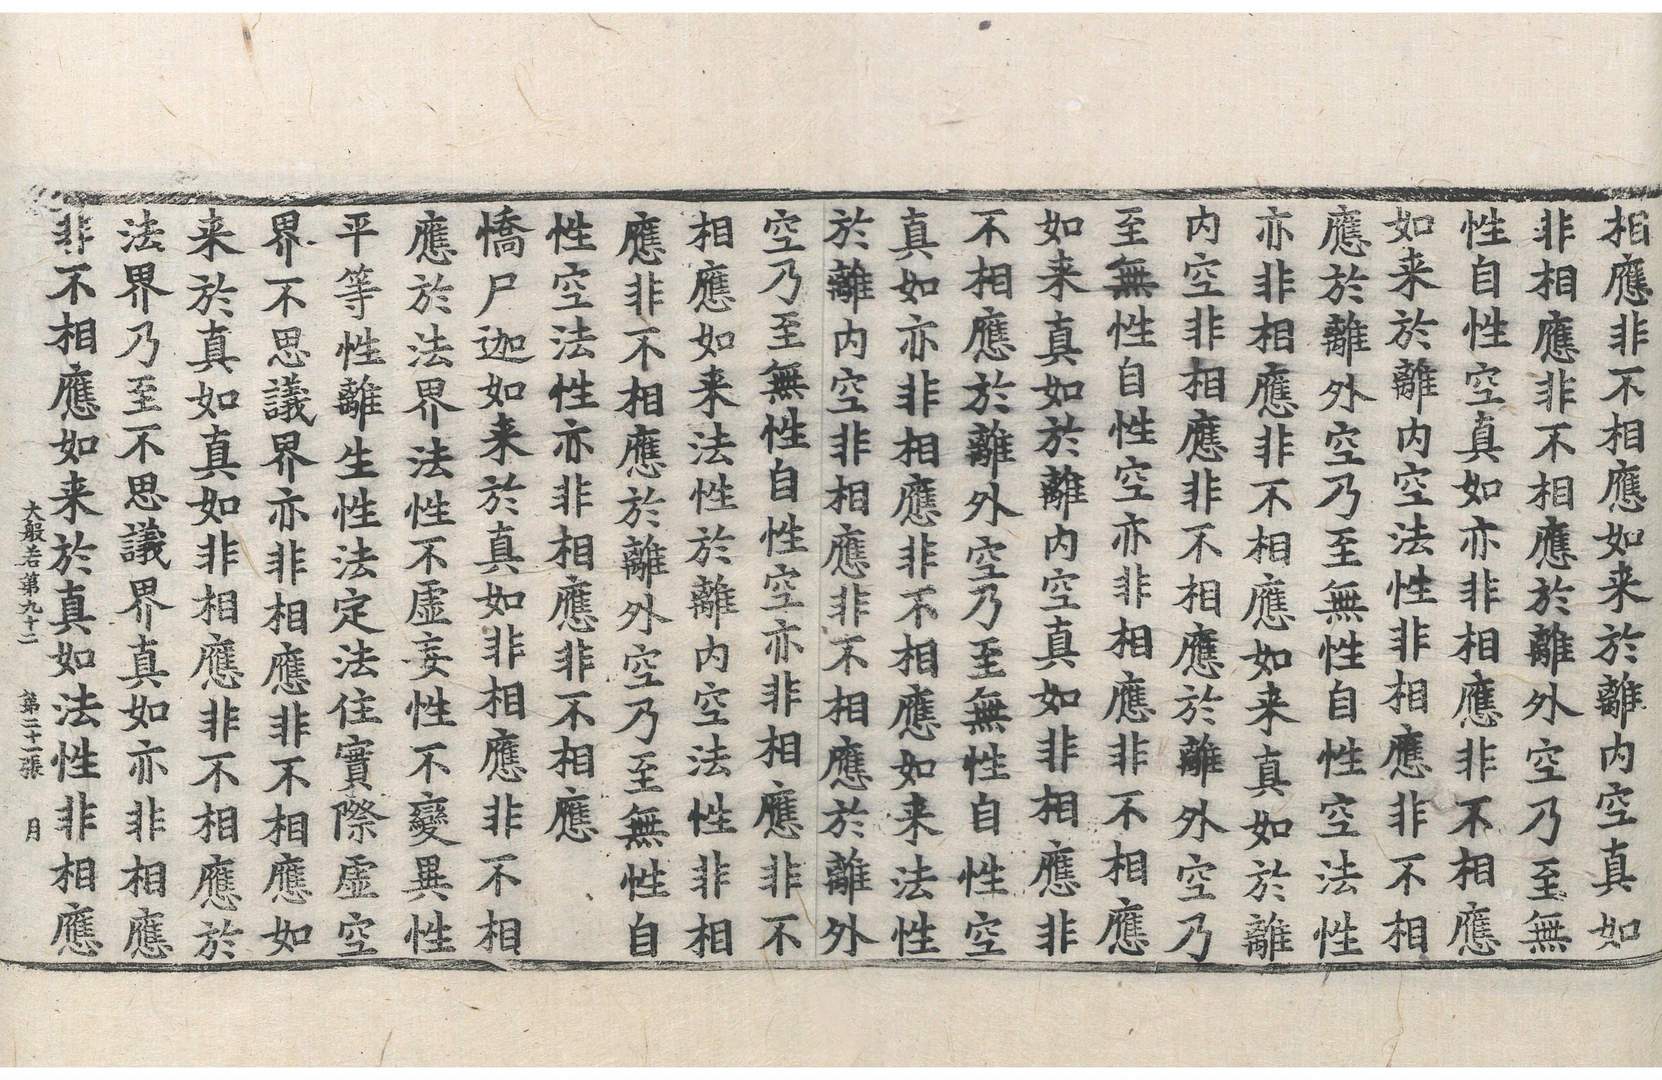 相應非不相應如来於離内空真如
非相應非不相應於離外空乃至無
性自性空真如亦非相應非不相應
如来於離内空法性非相應非不相
應於離外空乃至無性自性空法性
亦非相應非不相應如来真如於離
内空非相應非不相應於離外空乃
至無性自性空亦非相應非不相應
如来真如於離内空真如非相應非
不相應於離外空乃至無性自性空
真如亦非相應非不相應如来法性
於離内空非相應非不相應於離外
空乃至無性自性空亦非相應非不
相應如来法性於離内空法性非相
應非不相應於離外空乃至無性自
性空法性亦非相應非不相應
憍尸迦如来於真如非相應非不相
應於法界法性不虛妄性不變異性
平等性離生性法定法住實際虛空
界不思議界亦非相應非不相應如
来於真如真如非相應非不相應於
法界乃至不思議界真如亦非相應
非不相應如来於真如法性非相應
大般若第九十二 第二十一張 月